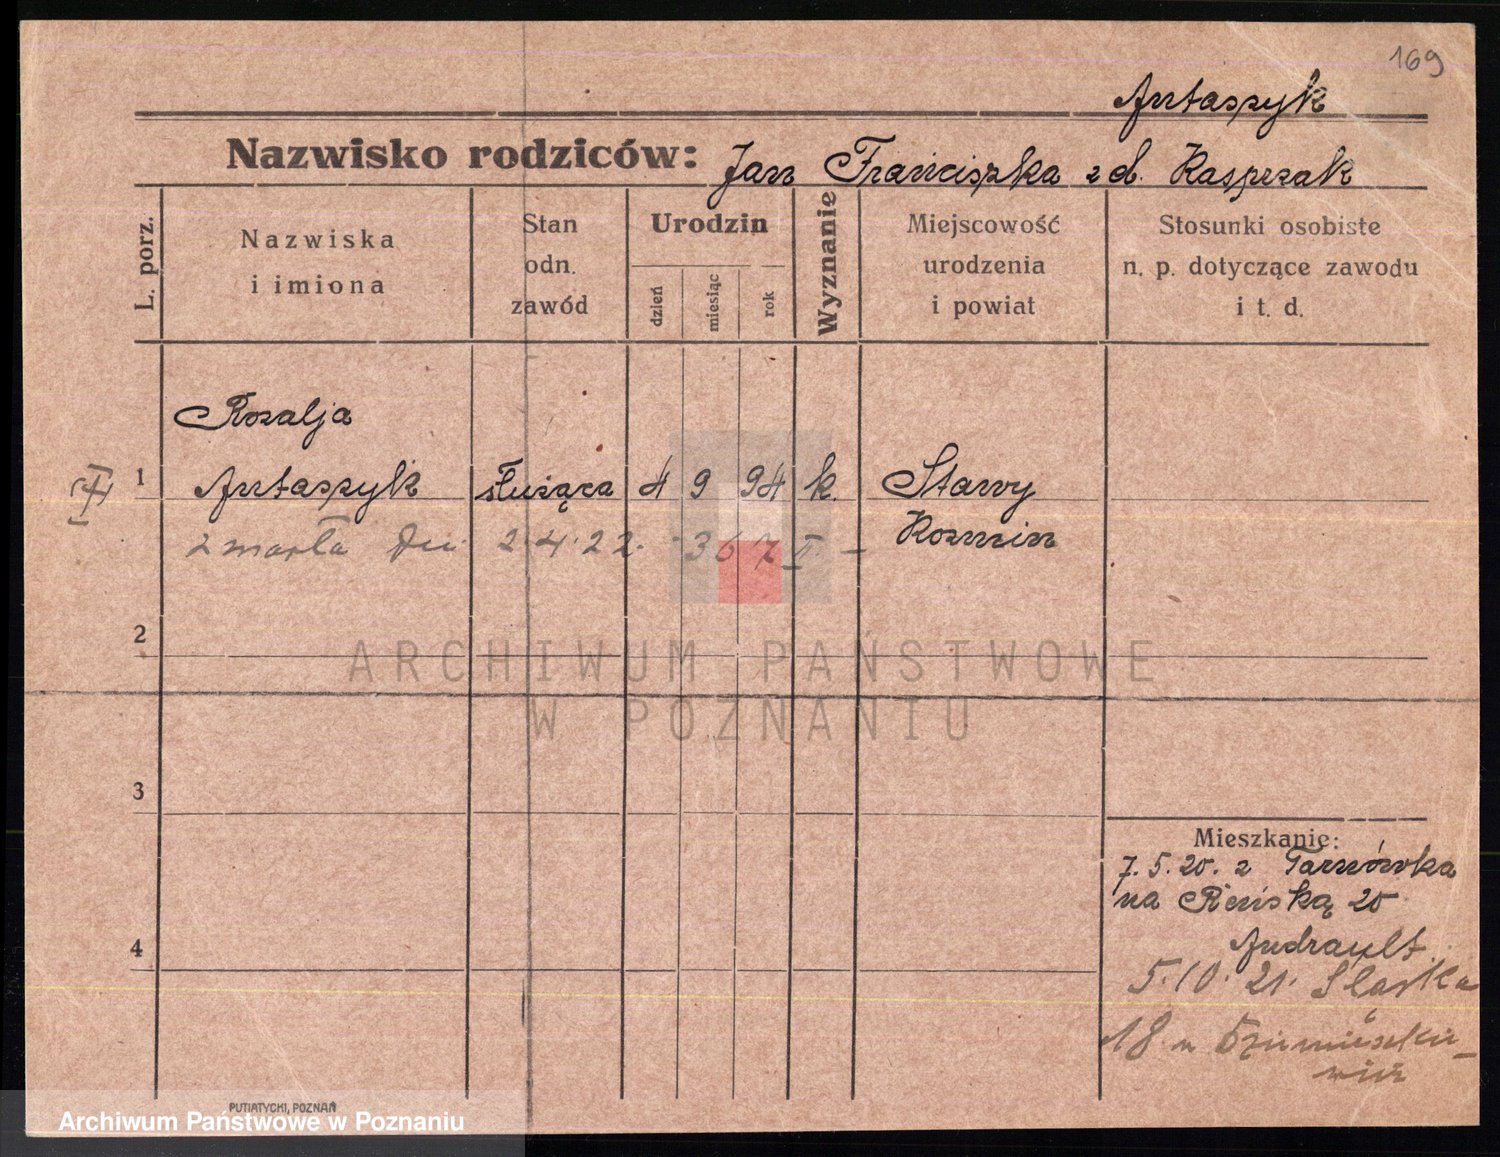 169
Antaszyk
Nazwisko rodziców: Jan Franciszka z d. Kasprzak
L. porz.
Nazwiska
i imiona
Stan
odn.
zawód
Urodzin
dzień
miesiąc
rok
Wyznanie
Miejscowość
urodzenia
i powiat
Stosunki osobiste
n. p. dotyczące zawodu
i t. d.
Rozalja
1 Antaszyk służąca 4 9 94 k. Stawy
Kozmin
zmarła dn. 2.4.22. 367 I –
2
ARCHIWUM PAŃSTWOWE
W POZNANIU
3
4
Mieszkanie:
7.5.20. z Tarnówka
na Reńską 20
Andrault.
5.10.21. Śląska
18 u
PUTIATYCKI, POZNAŃ
Archiwum Państwowe w Poznaniu